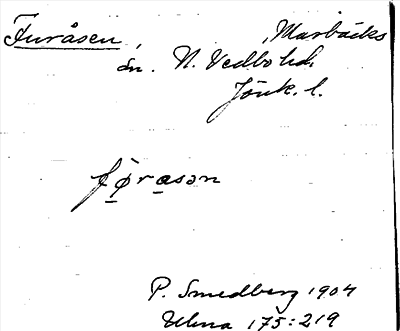 Furåsen, Marbäcks
sn. N. Vedbo hd.
Jönk. l.
førasən
P. Smedberg 1904
Ulma 175:219